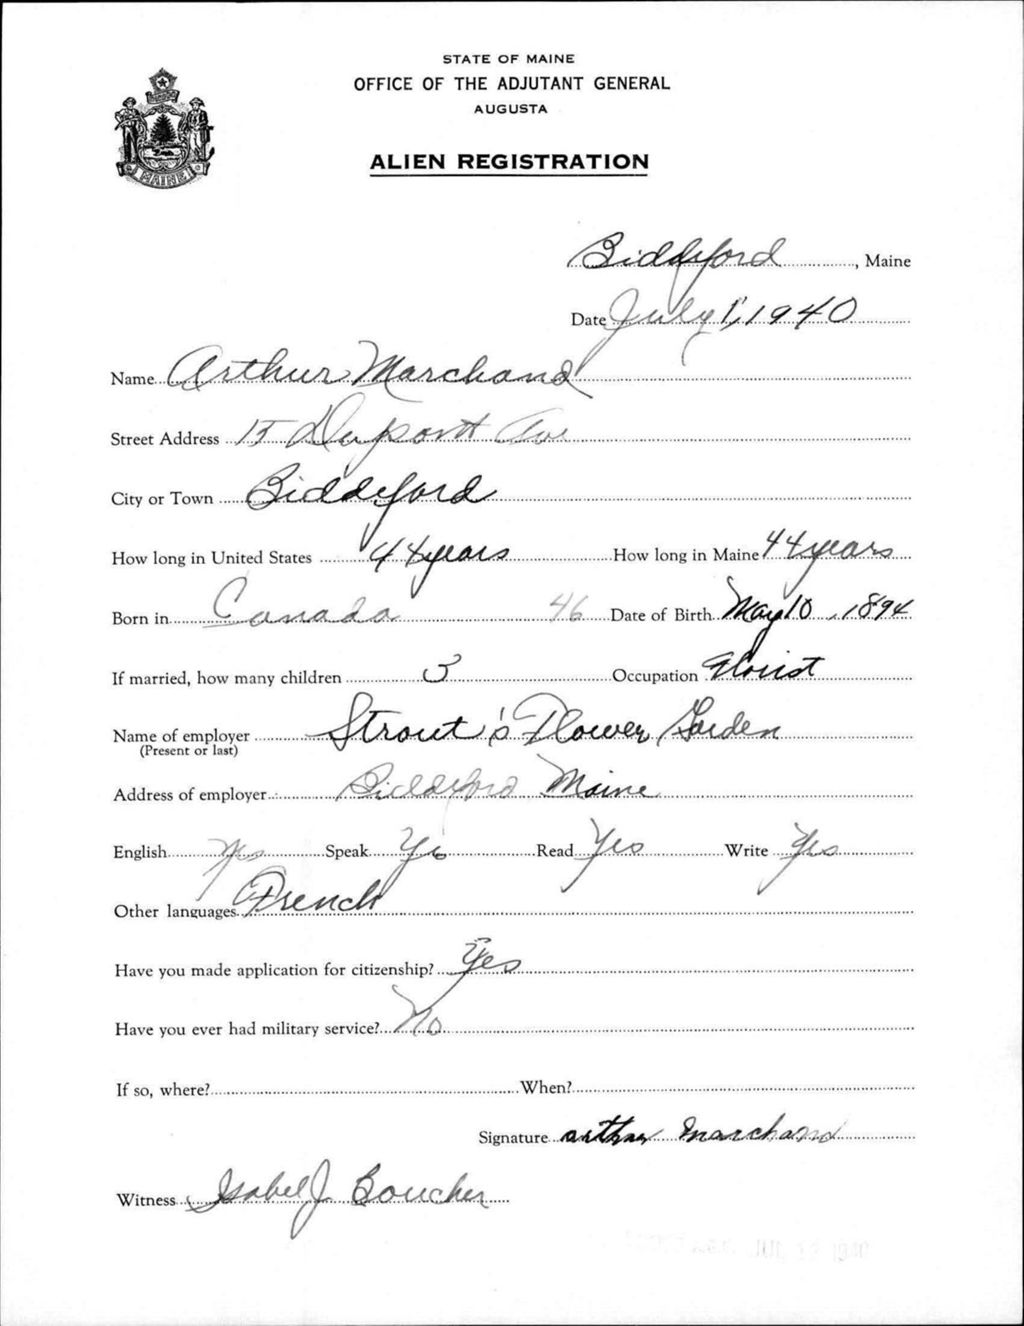 STATE OF MAINE
OFFICE OF THE ADJUTANT GENERAL
AUGUSTA
ALIEN REGISTRATION
MAINE
Biddeford, Maine
Date July 1, 1940
Name Arthur Marchand
Street Address 15 Dupont Ave
City or Town Biddeford
How long in United States 44 years How long in Maine 44 years
Born in Canada 46 Date of Birth May 10, 1894
If married, how many children 3 Occupation Florist
Name of employer Strout's Flower Garden
(Present or last)
Address of employer Biddeford Maine
English Yes Speak Yes Read Yes Write Yes
Other languages French
Have you made application for citizenship? Yes
Have you ever had military service? No
If so, where? When?
Signature Arthur Marchand
Witness Isabel J Boucher
JUL 1940